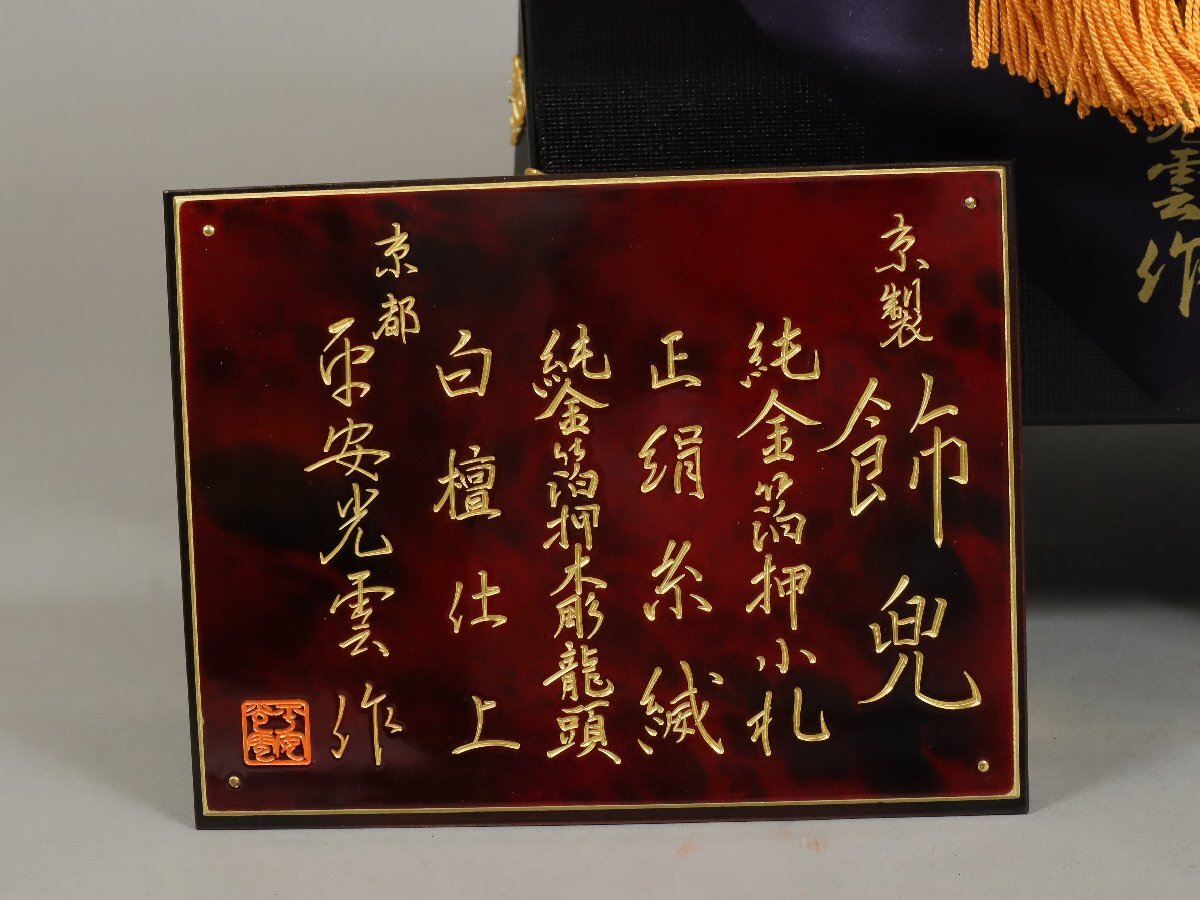 京製
飾兜
純金箔押小札
正絹糸縅
純金箔押木彫龍頭
白檀仕上
京都
平安光雲作
光雲作